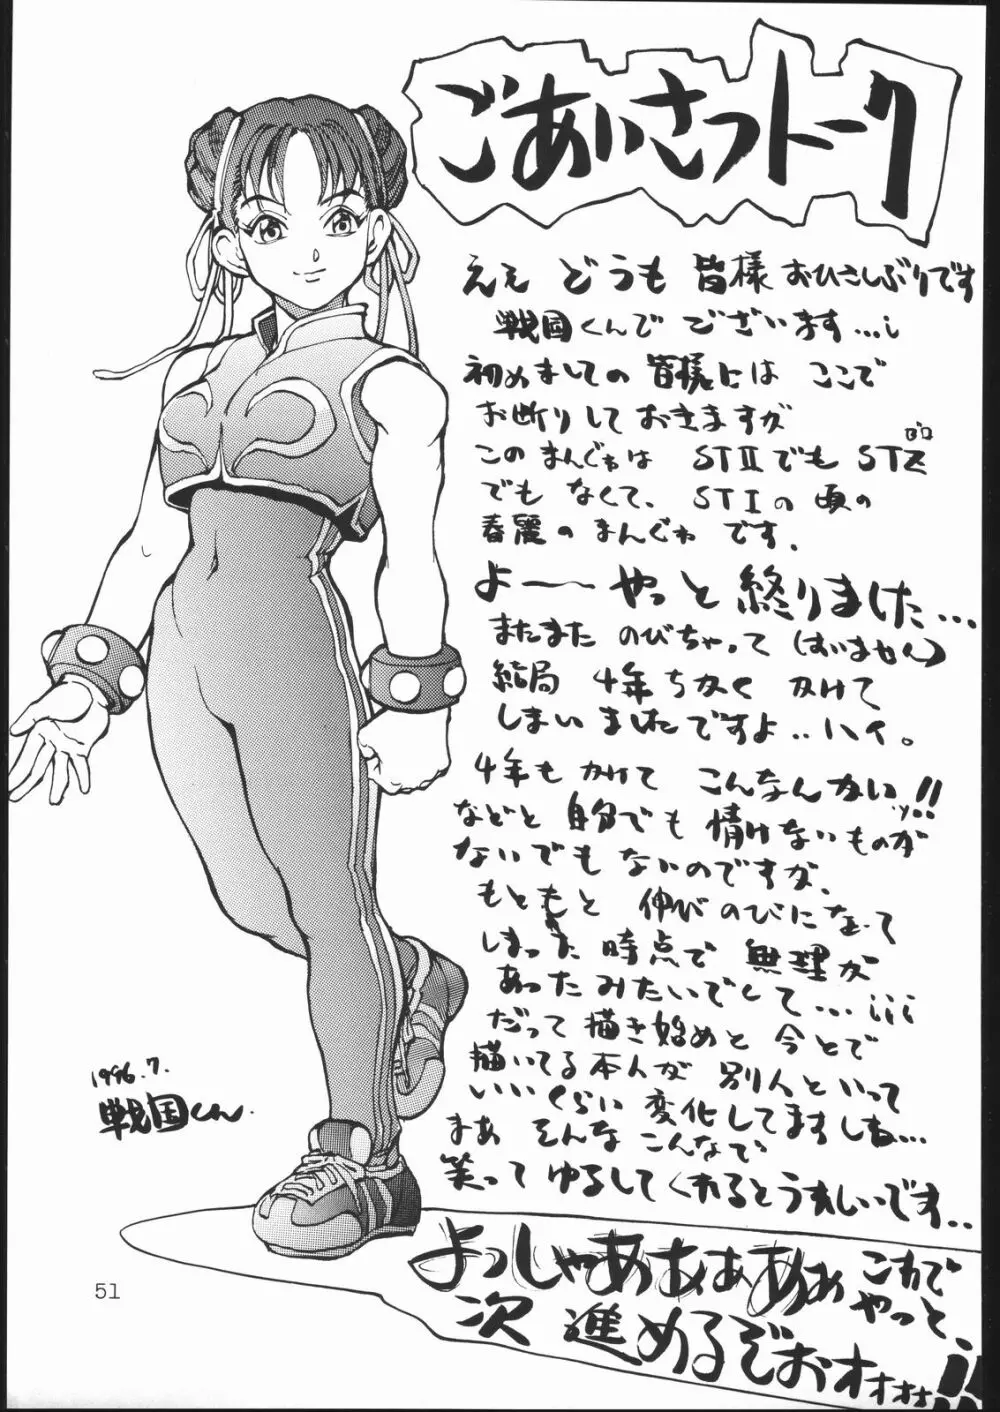 ごあいさつトーク
ええ どうも 皆様 おひさしぶりです
戦国くんで ございます...!
初めましての 皆様には ここで
お断りしておきますが
このまんがは STⅡでも STZ
ゼロ
でも なくて、STⅠの頃の
春麗のまんが です.
よーーやっと 終りました...
またまた のびちゃって (すいません)
結局 4年ちかく かけて
しまいましたですよ..ハイ。
4年もかけて こんなんかいッ!!
などと 自分でも 情けないものが
ないでもないのですが、
もともと 伸び のびになって
しまった 時点で 無理が
あったみたいでして...!!!
だって 描き始めと 今とで
描いてる本人が 別人といって
いいくらい 変化してますしね...
まあ そんなこんなで
笑って ゆるしてくれるとうれしいです..
よっしゃあああああ これで
やっと、
次 進めるぞおオォォォ!!
1996.7.
戦国くん.
51